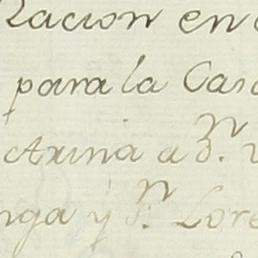 Racion en
para la Cas
Axina a
nga y Lore